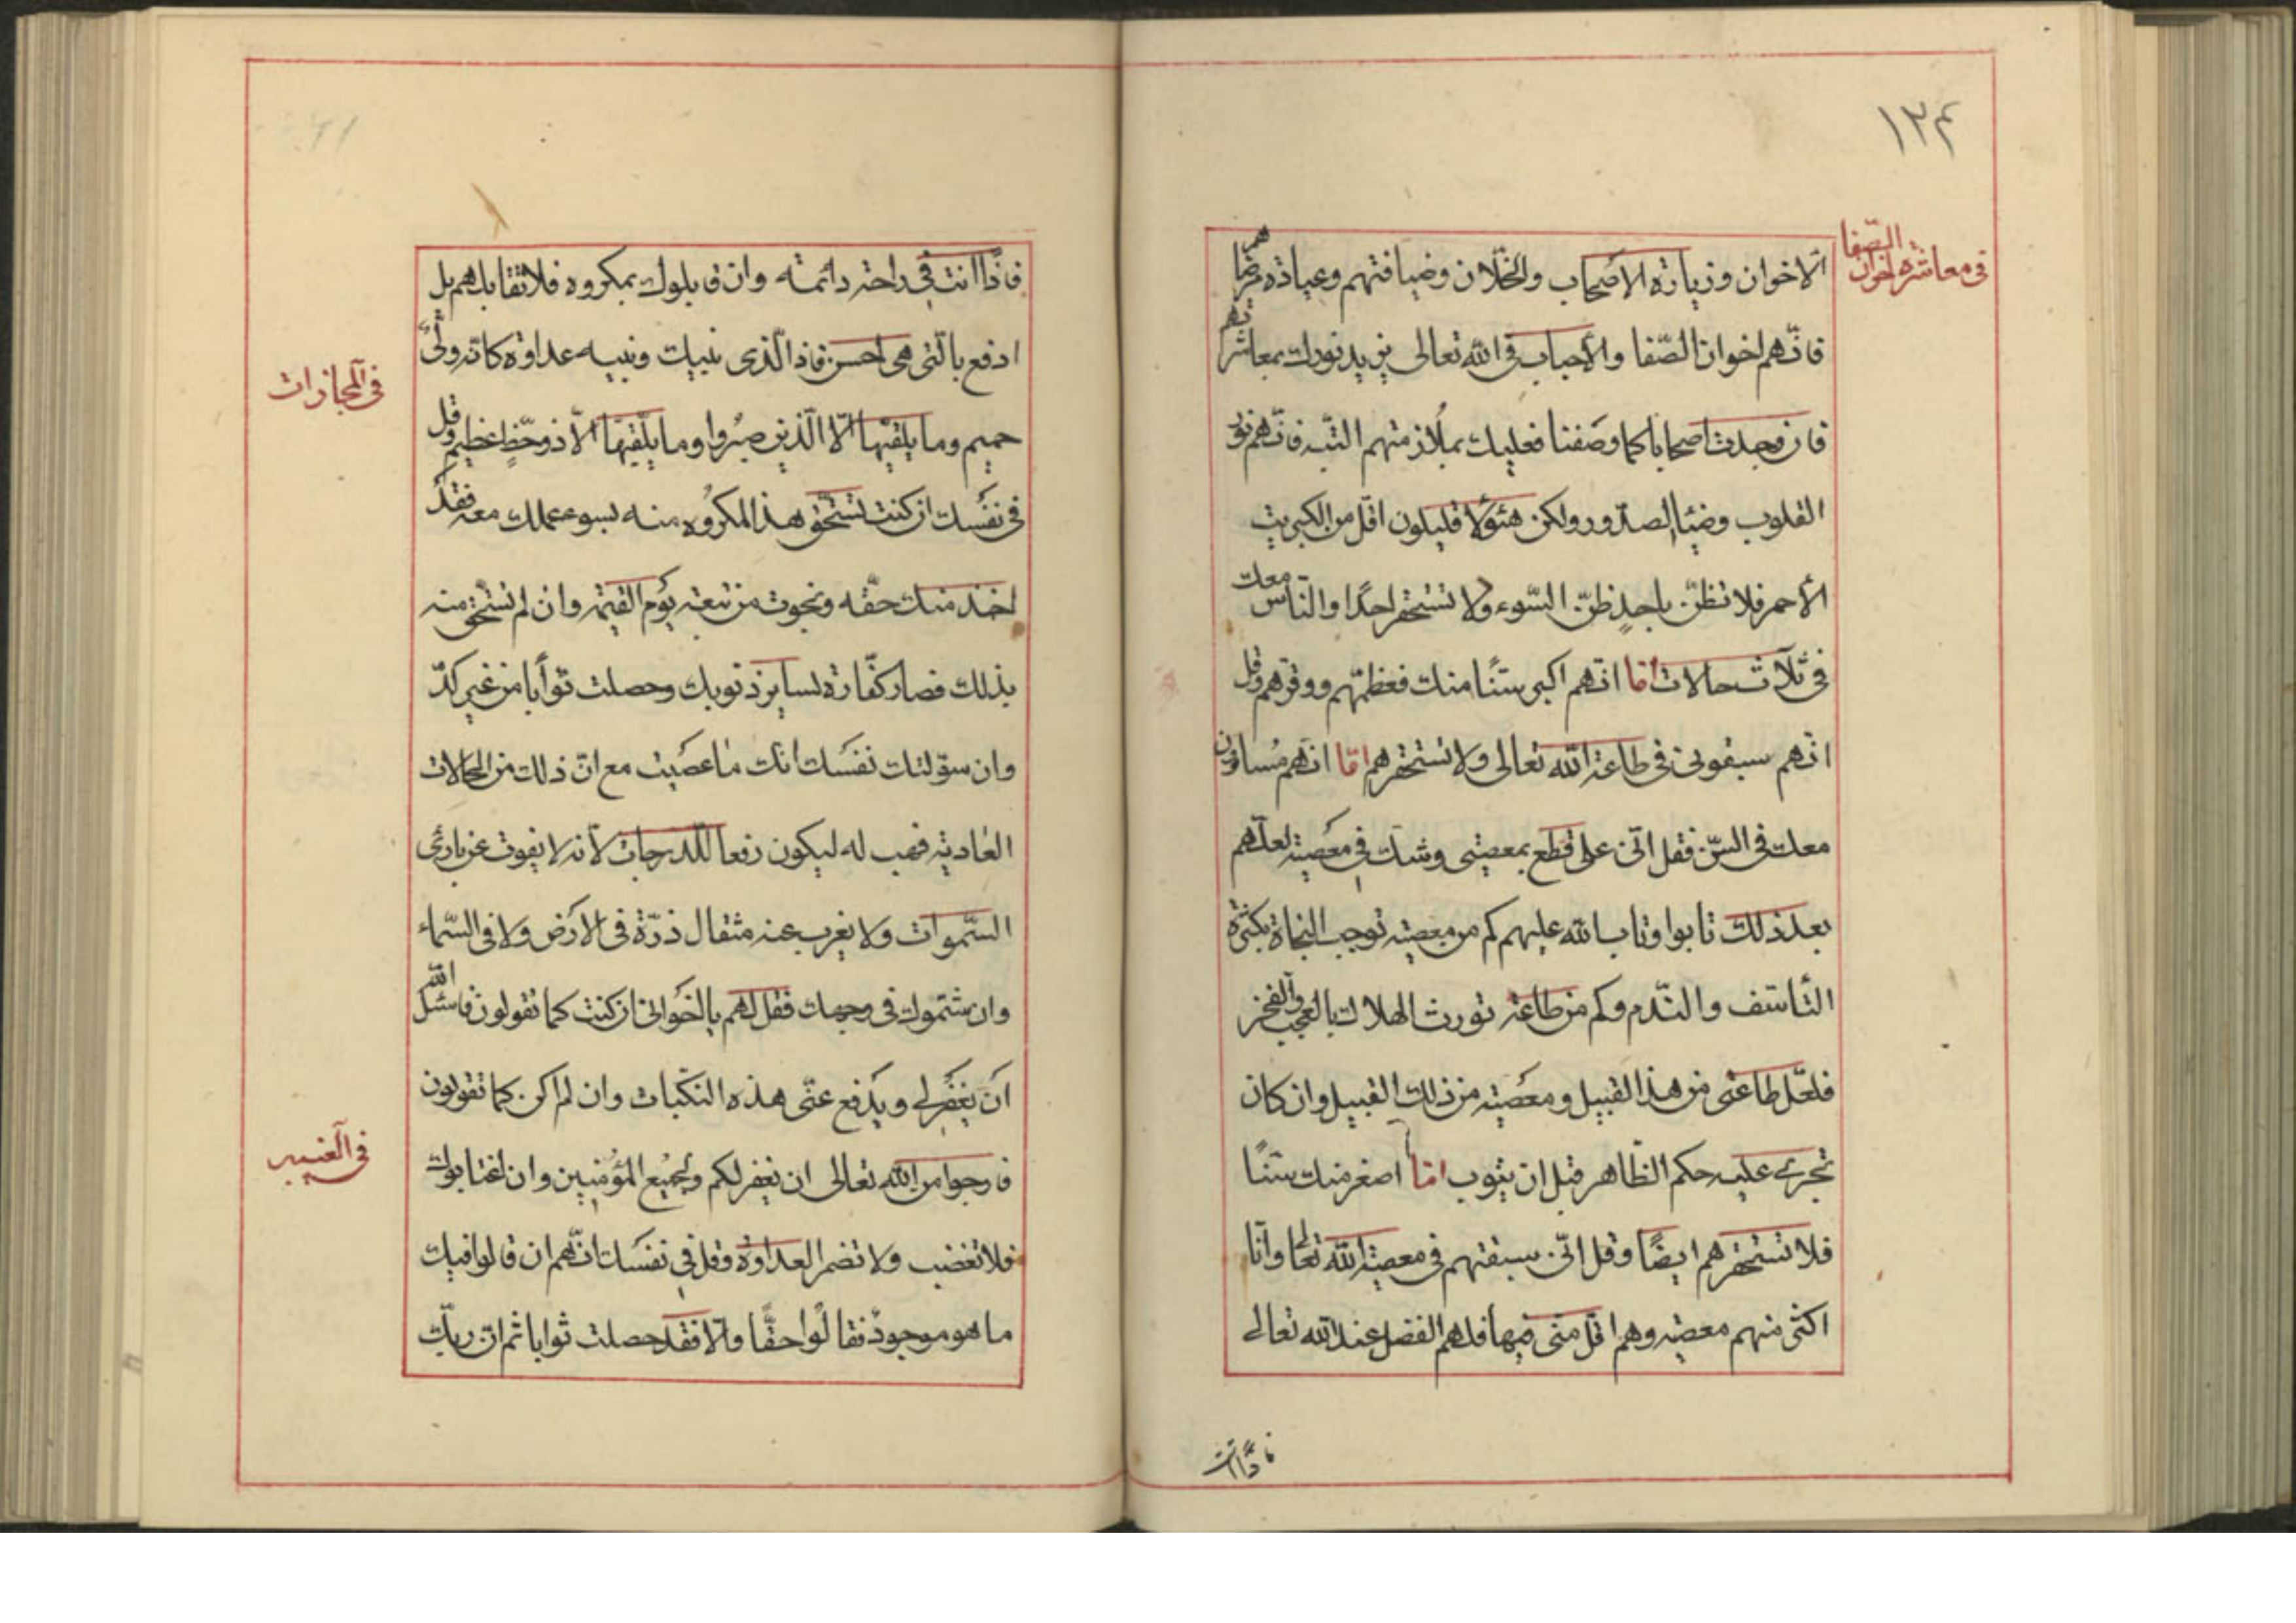 ١٣٤
فى معاشرة اخوان الصّفا
الاخوان وزيارة الأصحاب والخلّان وضيافتهم وعيادة مرضاهم
فانّهم اخوان الصّفا والأحباب فى الله تعالى يزيد نورك بمعاشرتهم
فان وجدت اصحابا كما وصفنا فعليك بملازمتهم البتّه فانّهم نور
القلوب وضياء الصدور ولكن هئؤلا قليلون اقلّ من الكبريت
الأحمر فلا تظنّ باحدٍ ظنّ السّوء ولا تستحقر احدًا والنّاس معك
فى ثلاث حالات امّا انّهم اكبر سنًّا منك فعظّمهم ووقّرهم وقل
انّهم سبقونى فى طاعة الله تعالى ولا تستحقرهم امّا انّهم مساوون
معك فى السّن فقل انّى على قطع بمعصيتى وشك فى معصيته لعلّهم
بعد ذلك تابوا وتاب الله عليهم كم من معصيته توجب النجاة بكثرة
التأسّف والنّدم وكم من طاعة تورث الهلاك بالعجب والفخر
فلعّل طاعتى من هذا القبيل ومعصيته من ذلك القبيل وان كان
تجرى عليه حكم الظّاهر قبل ان يتوب امّا اصغر منك سنًّا
فلا تستحقرهم ايضًا وقل انّى سبقتهم فى معصية الله تعالى وأنا
اكثر منهم معصيه وهم اقلّ منى فيها فلهم الفضل عند الله تعالى
فاذًا انت
فاذًا انت فى راحة دائمته وان قابلوك بمكروه فلا تقابلهم بل
ادفع بالّتى هى احسن فاذا الّذى بينك وبينه عداوة كانّه ولىّ
حميم وما يلقّيها الّا الّذين صبروا وما يلّقيها الّا ذو حّظٍ عظيم وقل
فى نفسك ان كنت تستحّق هذا المكروه منه بسوء عملك معه فقد
اخذ منك حقّه ونجوت من تبعته يوم القيمة وان لم تستّحق منه
بذلك فصار كفّارة لساير ذنوبك وحصلت ثوابا من غير كدّ
وان سوّلتك نفسك انّك ما عصيت مع انّ ذلك من المحالات
العادية فهب له ليكون رفعا للدرجات لأنه لا يفوت عن بارئ
السّموات ولا يعزب عنه مثقال ذرّة فى الارض ولا فى السّماء
وان شتموك فى وجهك فقل لهم يا اخوانى ان كنت كما تقولون فاسئل الله
ان يغفر لى ويدفع عنّى هذه النكبات وان لم اكن كما تقولون
فارجوا من الله تعالى ان يغفر لكم ولجميع المؤمنين وان اغتابوك
فلا تغضب ولا تضمر العداوة وقل فى نفسك انّهم ان قالوا فيك
ما هو موجودٌ فقالوا حقًّا والّا فقد حصلت ثوابا ثم انّ ربّك
فى المجازات
فى الغيبه